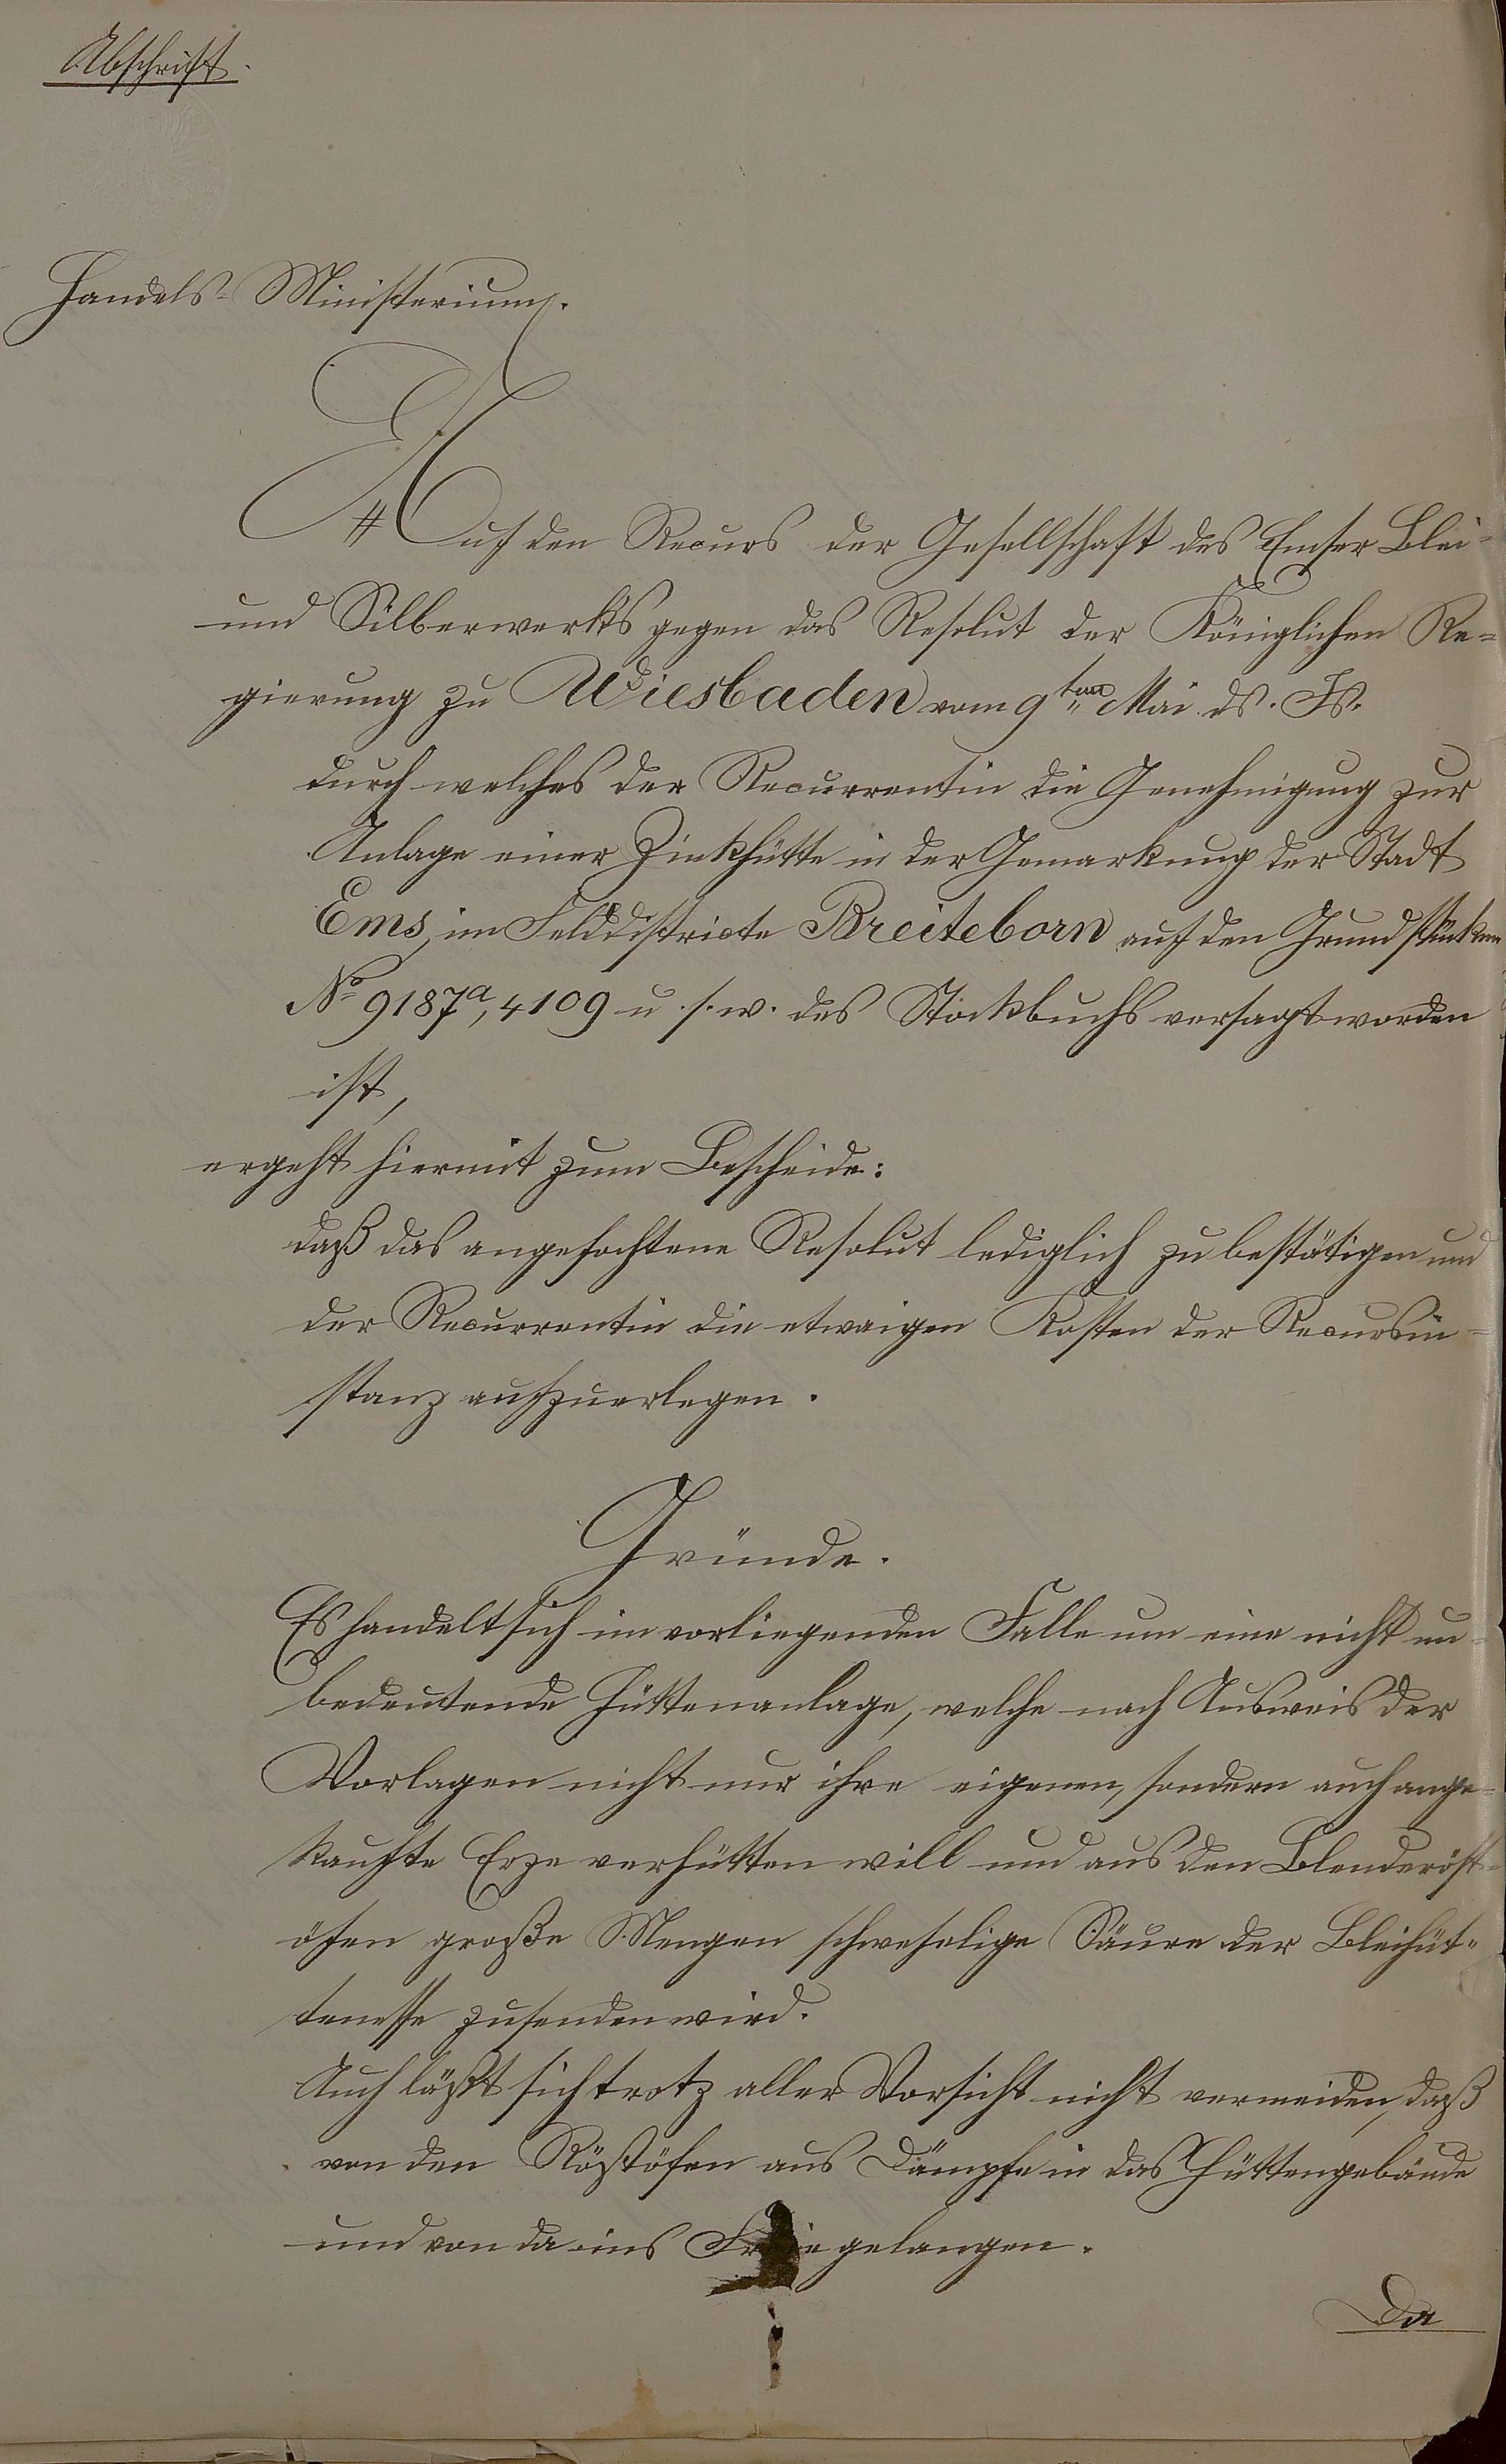 Abschrift.
Handels-Ministerium.
Auf den Recurs der Gesellschaft des Emser Blei-
und Silberwerks gegen das Resolut der Königlichen Re=
gierung zu Wiesbaden vom 9ten Mai ds. Js.
durch welches der Recurrentin die Genehmigung zur
Anlage einer Zinkhütte in der Gemarkung der Stadt
Ems, im Felddistricte Breiteborn auf den Grundstücken
No 9187a, 4109 u. s. w. des Stockbuchs versagt worden
ist,
ergeht hiermit zum Bescheide:
daß das angefochtene Resolut lediglich zu bestätigen und
der Recurrentin die etwaigen Kosten der Recursin=
stanz aufzuerlegen.
Gründe.
Es handelt sich im vorliegenden Falle um eine nicht un=
bedeutende Hüttenanlage, welche nach Ausweis der
Vorlagen nicht nur ihre eigenen, sondern auch ange=
kaufte Erze verhütten will und aus den Blenderöst=
öfen große Mengen schwefelige Säure der Bleihüt=
tenesse zusenden wird.
Auch läßt sich trotz aller Vorsicht nicht vermeiden, daß
von den Röstöfen aus Dämpfe in das Hüttengebäude
und von da ins Freie gelangen.
Da